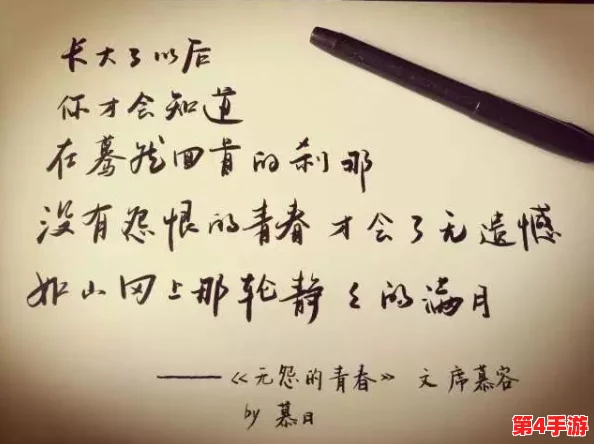 长大了以后
你才会知道
在蓦然回首的刹那
没有怨恨的青春才会了无遗憾
如山冈上那轮静々的满月
——《无怨的青春》 文 席慕容
by 慕日
第4手游